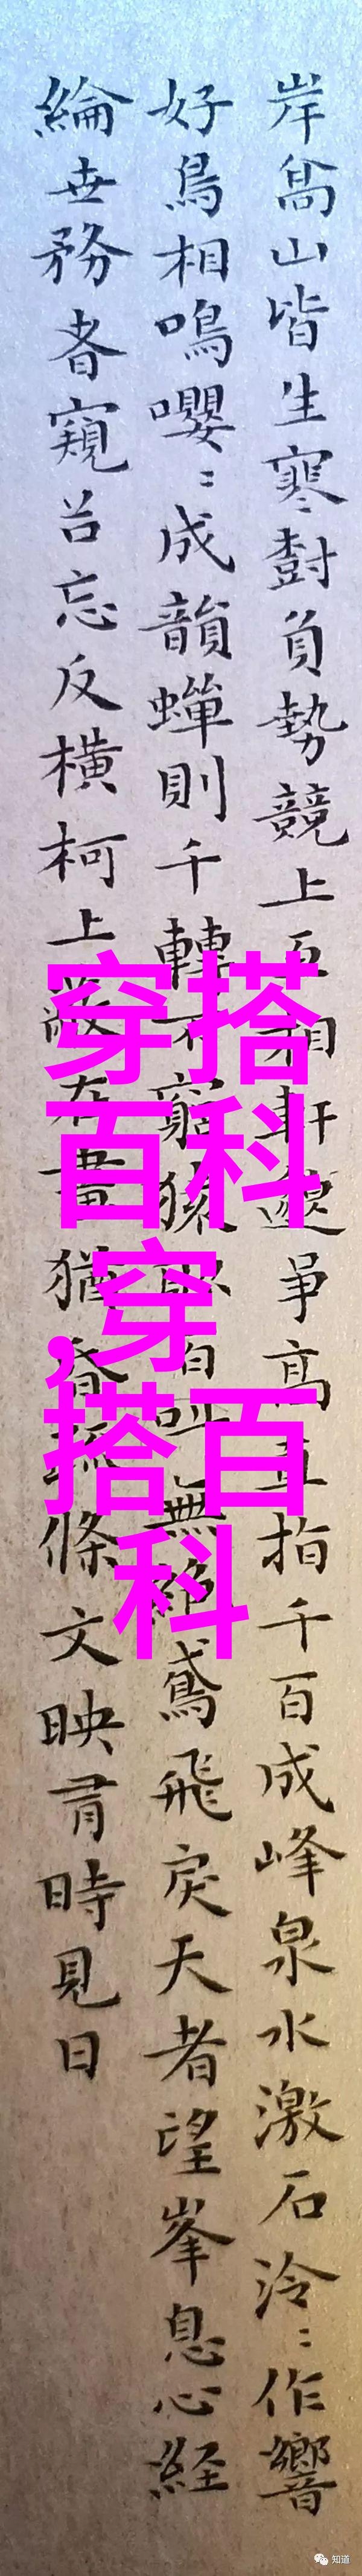 岸高山皆生寒樹負勢競上互相軒邈爭高直指千百成峰泉水激石泠〻作響
好鳥相鳴嚶〻成韻蟬則千轉不窮猿則百叫無絕鳶飛戾天者望峯息心経
綸世務者窺谷忘反橫柯上蔽在晝猶昏疏條文映有時見日
穿搭
百科
,穿
搭百
科
知道